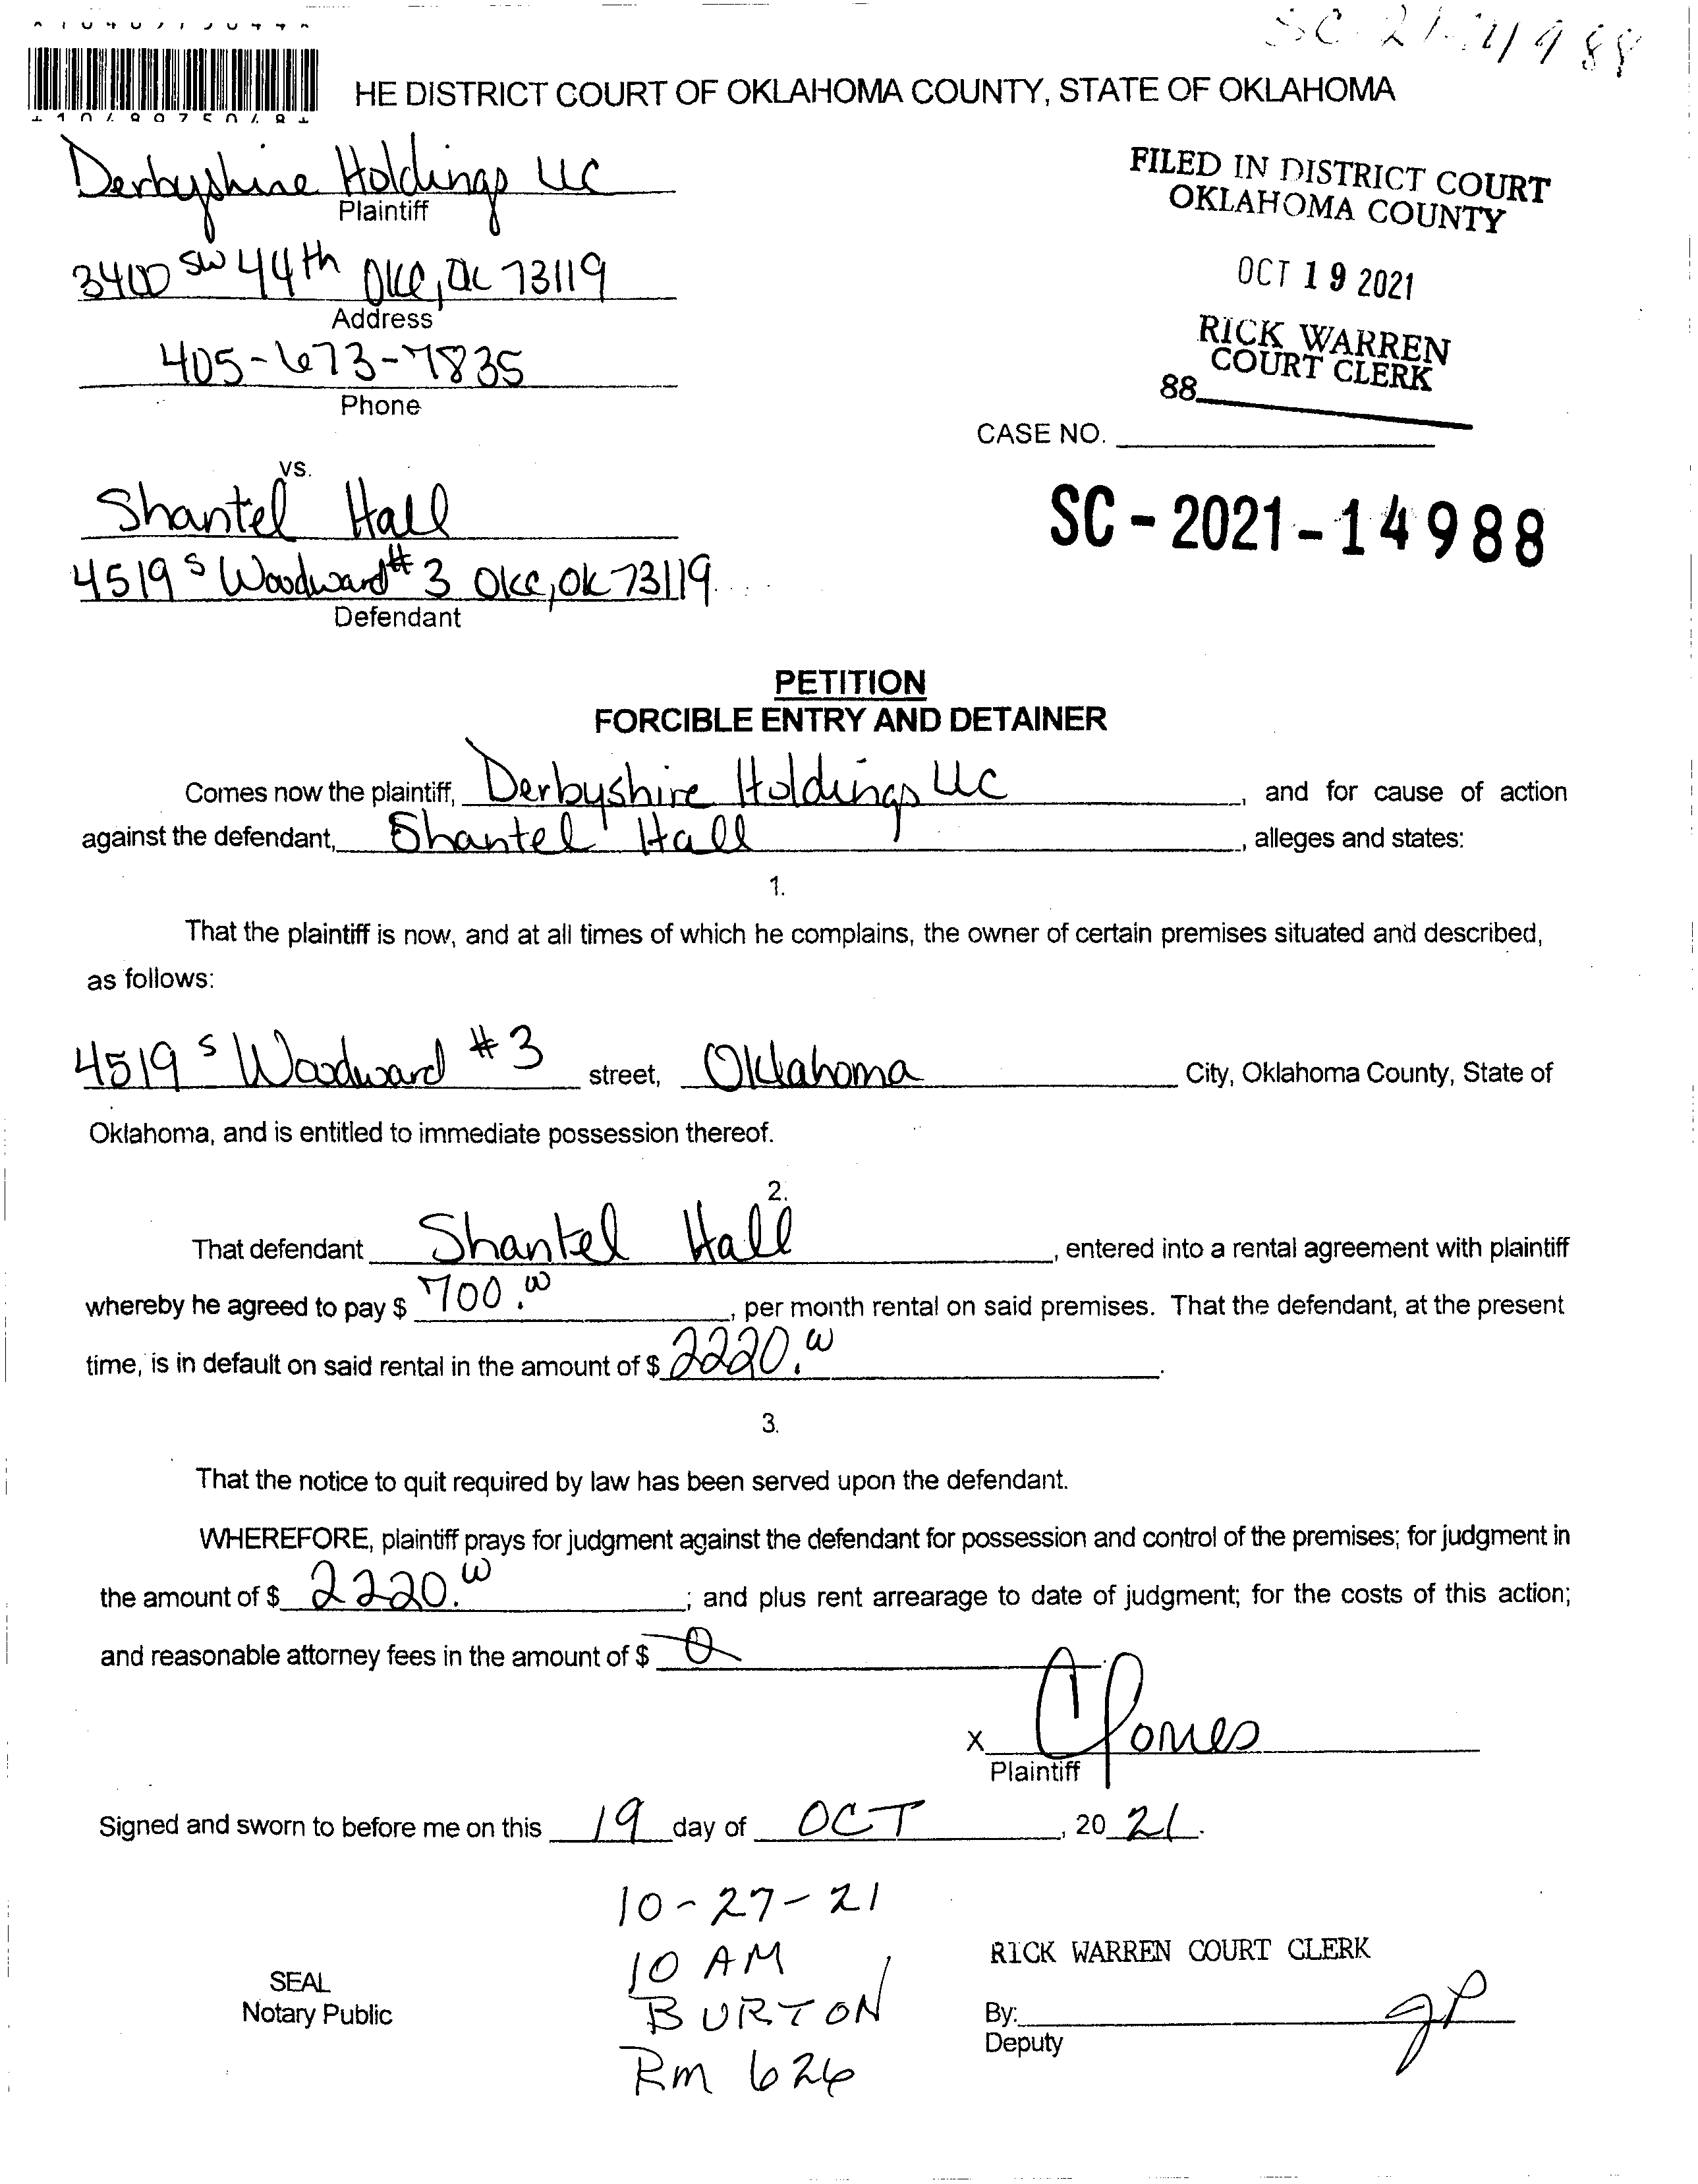 SC 21-14988
HE DISTRICT COURT OF OKLAHOMA COUNTY, STATE OF OKLAHOMA
Derbyshire Holdings LLC
Plaintiff
3400 SW 44th OKC, OK 73119
Address
405-673-7835
Phone
FILED IN DISTRICT COURT
OKLAHOMA COUNTY
OCT 19 2021
RICK WARREN
COURT CLERK
88
CASE NO.
SC-2021-14988
vs.
Shantel Hall
4519 S Woodward #3 OKC, OK 73119
Defendant
PETITION
FORCIBLE ENTRY AND DETAINER
Comes now the plaintiff, Derbyshire Holdings LLC, and for cause of action
against the defendant, Shantel Hall, alleges and states:
1.
That the plaintiff is now, and at all times of which he complains, the owner of certain premises situated and described,
as follows:
4519 S Woodward #3 street, Oklahoma City, Oklahoma County, State of
Oklahoma, and is entitled to immediate possession thereof.
2.
That defendant Shantel Hall, entered into a rental agreement with plaintiff
whereby he agreed to pay $ 700.00, per month rental on said premises. That the defendant, at the present
time, is in default on said rental in the amount of $ 2220.00.
3.
That the notice to quit required by law has been served upon the defendant.
WHEREFORE, plaintiff prays for judgment against the defendant for possession and control of the premises; for judgment in
the amount of $ 2220.00; and plus rent arrearage to date of judgment; for the costs of this action;
and reasonable attorney fees in the amount of $ 0
X CJones
Plaintiff
Signed and sworn to before me on this 19 day of OCT, 2021.
10-27-21
10 AM
BURTON
Rm 626
SEAL
Notary Public
RICK WARREN COURT CLERK
By: JP
Deputy